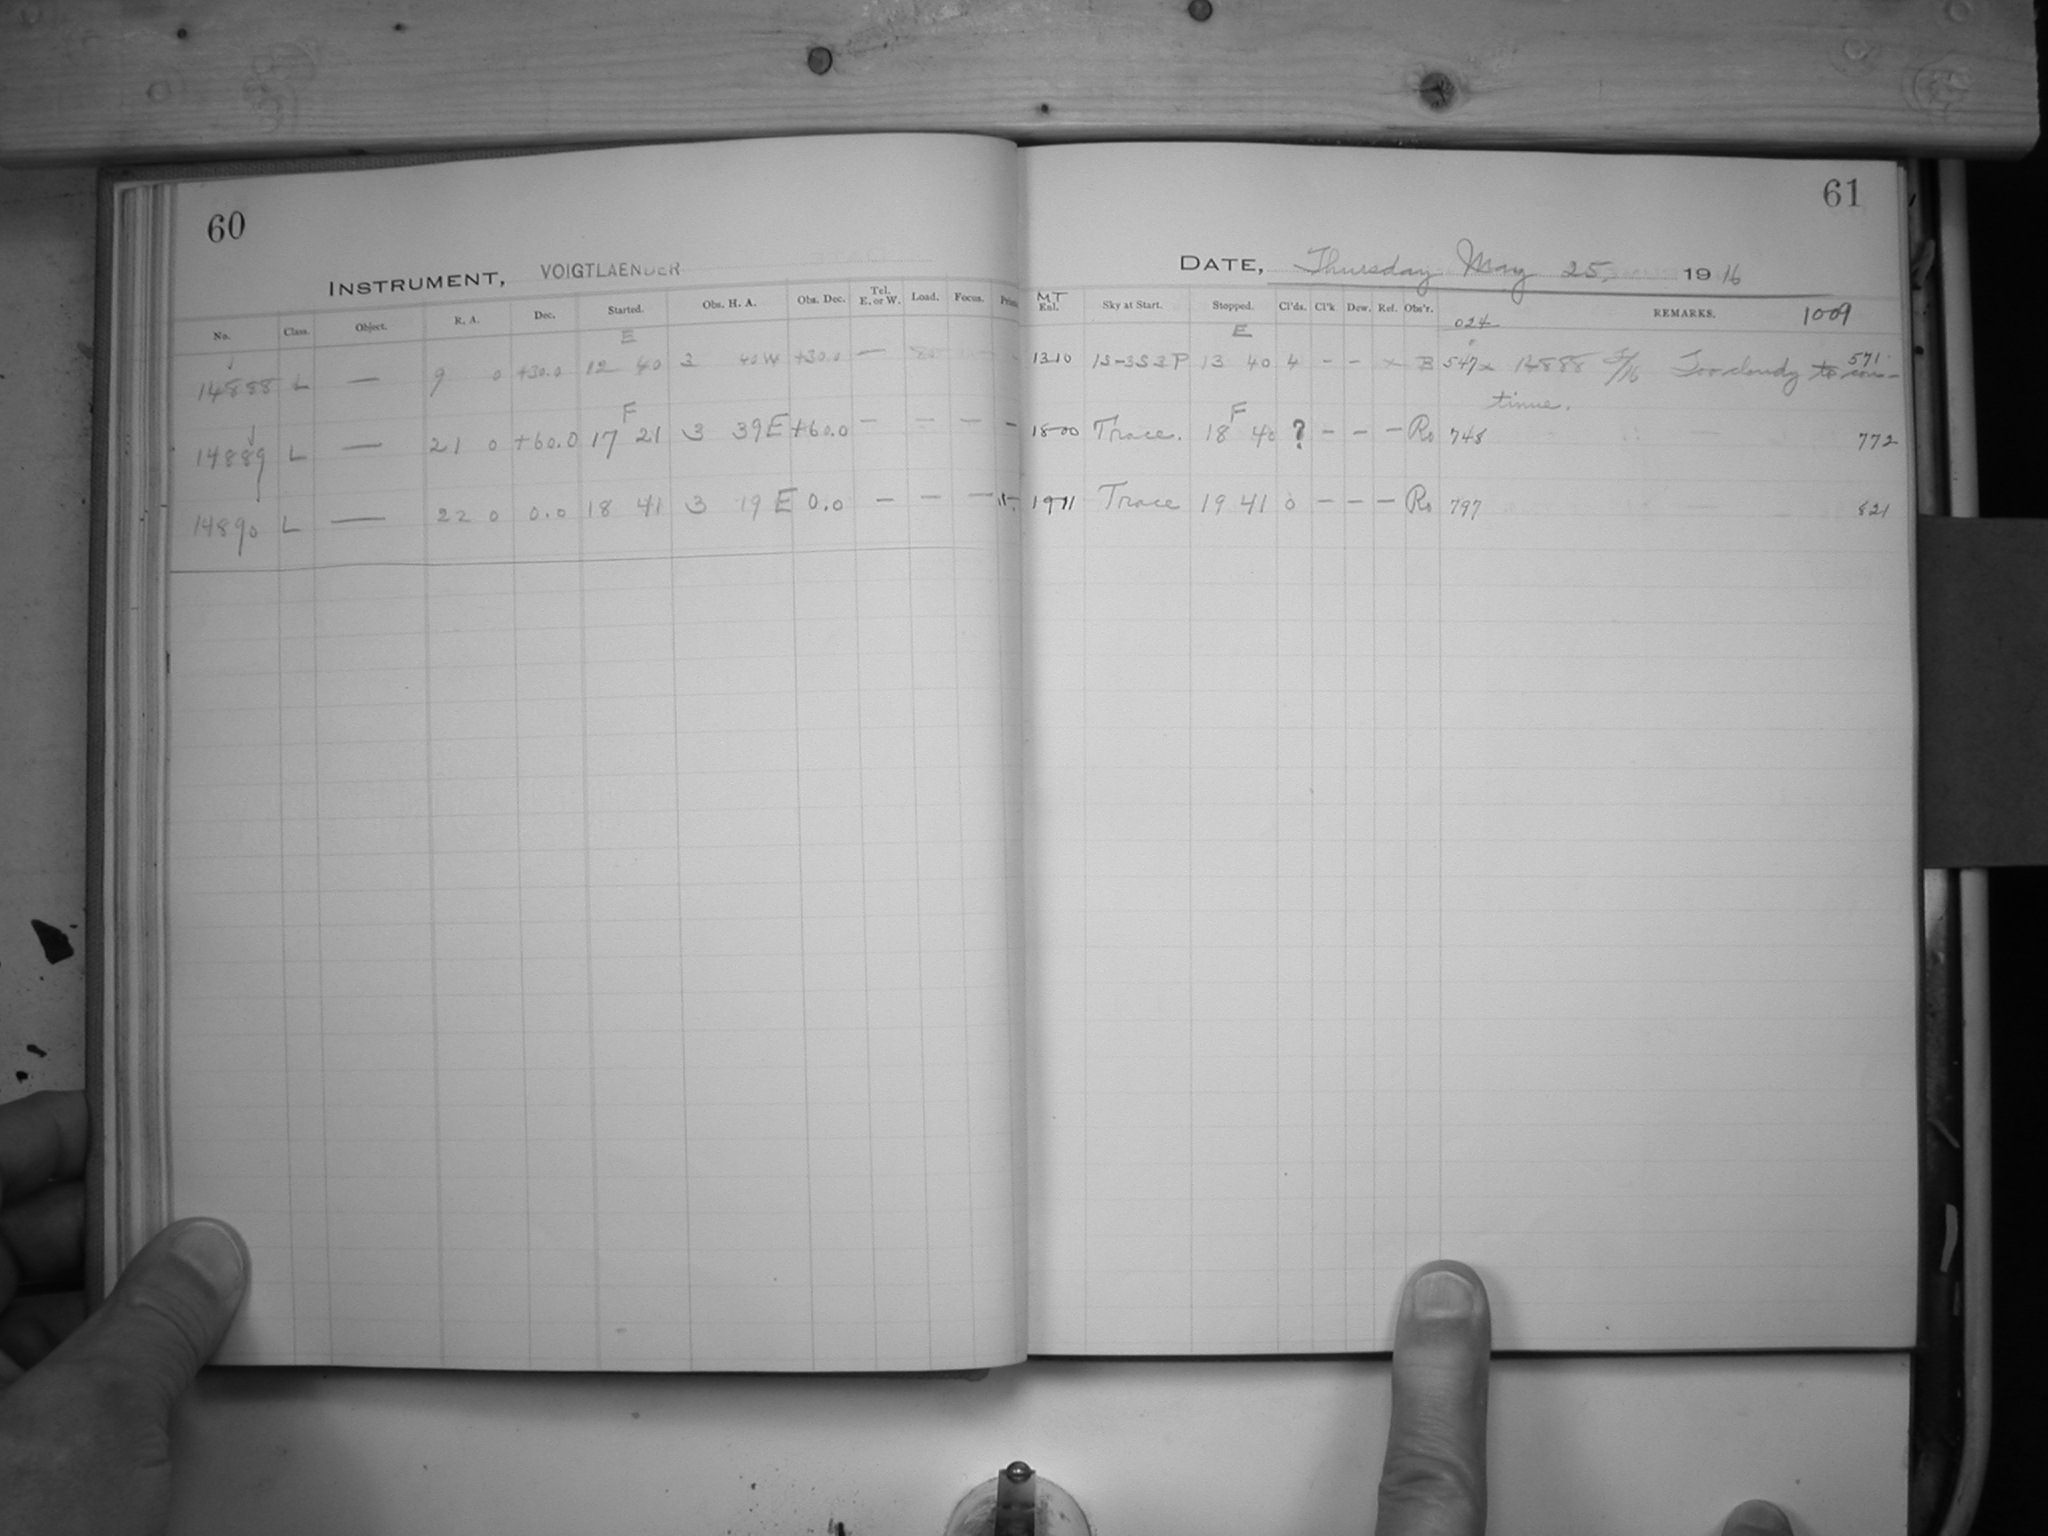 60
INSTRUMENT, VOIGTLAENDER
No. Class. Object. R. A. Dec. Started. Obs. H. A. Obs. Dec. Tel. E. or W. Load. Focus.
E
14888 L — 9 0 +30.0 12 40 3 40 W +30.0 —
F
14889 L — 21 0 +60.0 17 21 3 39 E +60.0 — — — —
14890 L — 22 0 0.0 18 41 3 19 E 0.0 — — —
61
DATE, Thursday May 25, 1916
MT
Exl. Sky at Start. Stopped. Cl'ds. Cl'k Dew. Ref. Obs'r. REMARKS. 1009
024
E
1310 1S-3S3P 13 40 4 - - x B 547 x 14888 F/16 Too cloudy to con- 571
tinue.
F
1800 Trace. 18 40 ? - - - Ro 748 772
1911 Trace 19 41 0 - - - Ro 797 821